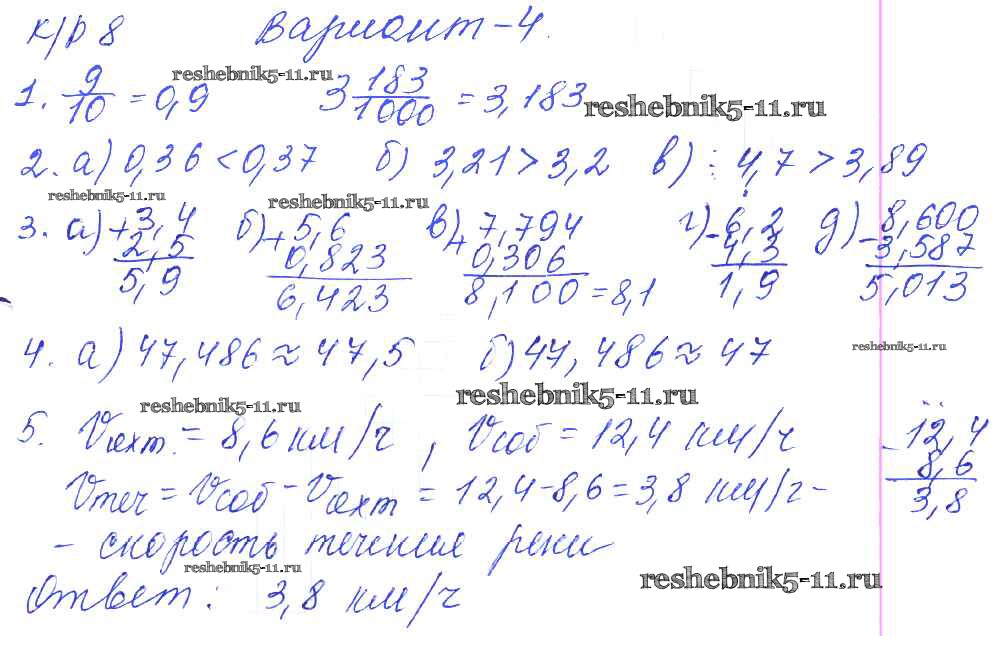 К/Р 8 Вариант-4.
reshebnik5-11.ru
1. 9/10 = 0,9 3 183/1000 = 3,183 reshebnik5-11.ru
2. а) 0,36 < 0,37 б) 3,21 > 3,2 в) 4,7 > 3,89
reshebnik5-11.ru reshebnik5-11.ru
3. а) + 3,4 б) + 5,6 в) + 7,794 г) - 6,2 д) - 8,600
2,5 0,823 0,306 4,3 3,587
5,9 6,423 8,100 = 8,1 1,9 5,013
4. а) 47,486 ≈ 47,5 б) 47,486 ≈ 47 reshebnik5-11.ru
reshebnik5-11.ru reshebnik5-11.ru
5. Vяхт. = 8,6 км/ч, Vсоб = 12,4 км/ч - 12,4
8,6
Vтеч = Vсоб - Vяхт = 12,4-8,6 = 3,8 км/ч - 3,8
- скорость течения реки
reshebnik5-11.ru reshebnik5-11.ru
Ответ: 3,8 км/ч